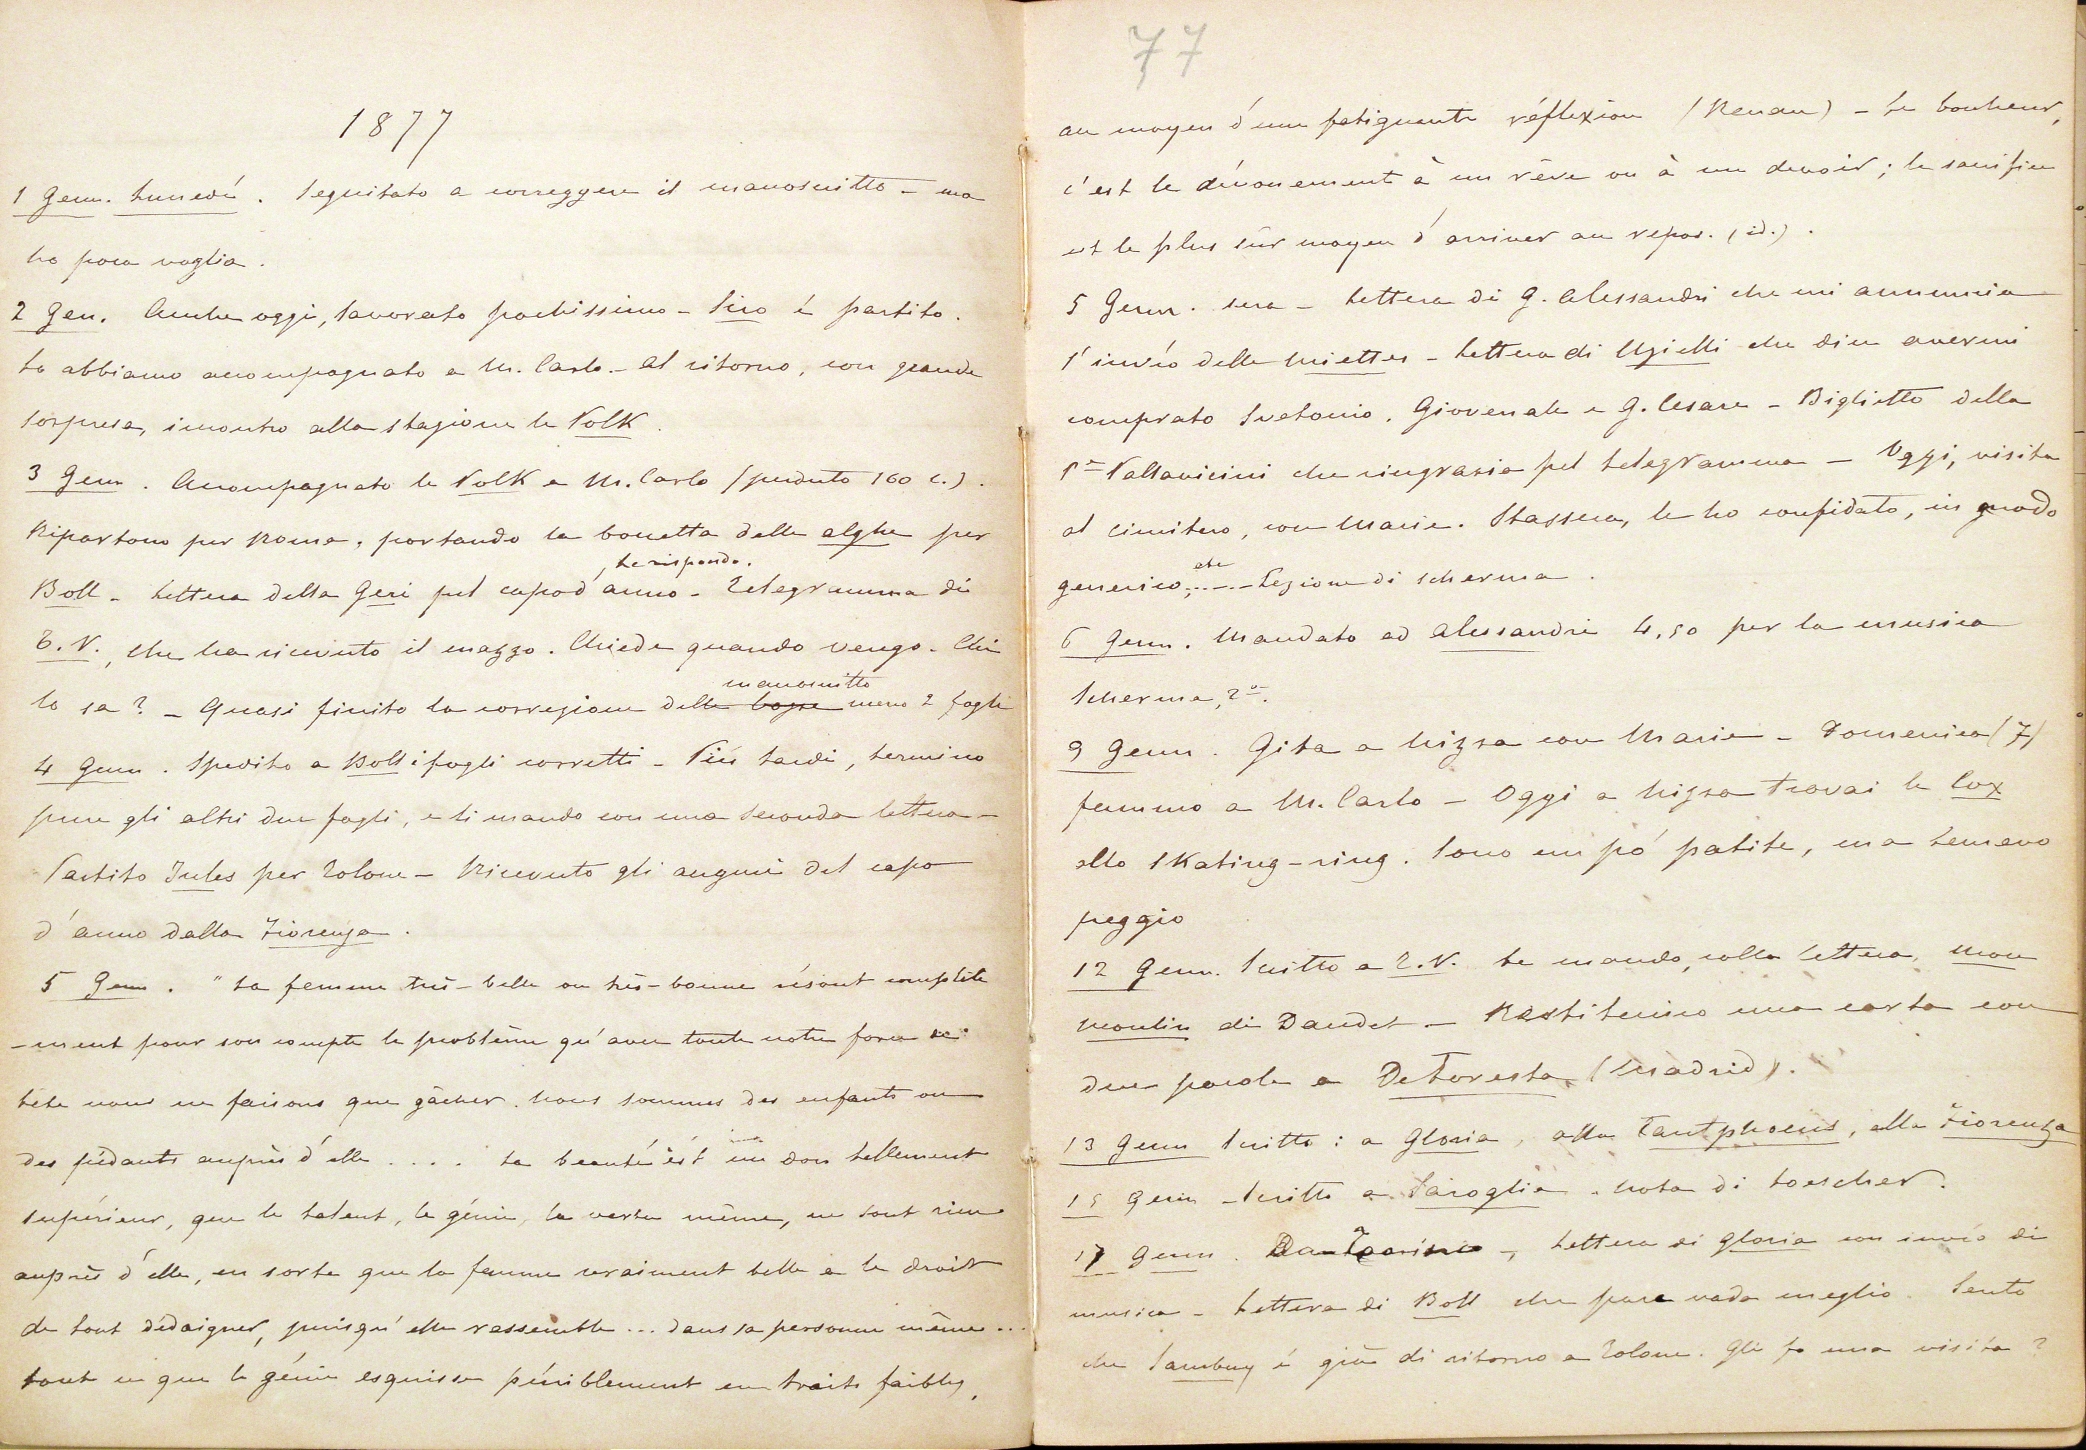 1877
1 Genn. Lunedí. Seguitato a correggere il manoscritto – ma
ho poca voglia.
2 Gen. Anche oggi, lavorato pochissimo – Siro é partito.
Lo abbiamo accompagnato a M. Carlo. – Al ritorno, con grande
sorpresa, incontro alla stazione le Volk.
3 Genn. Accompagnato le Volk a M. Carlo (perduto 160 c.).
Ripartono per Roma, portando la boccetta delle alghe per
Boll – Lettera della Geri pel capo d'anno – Le rispondo. Telegramma di
E. V., che ha ricevuto il mazzo. Chiede quando vengo. Chi
lo sa? – Quasi finito la correzione delle bozze manoscritto meno 2 fogli
4 Genn. Spedito a Boll i fogli corretti – Piú tardi, termino
pure gli altri due fogli, e li mando con una seconda lettera –
Partito Jules per Tolone – Ricevuto gli auguri del capo
d'anno dalla Fiorenza.
5 Genn. "La femme très-belle ou très-bonne résout complète
-ment pour son compte le problème qu'avec toute notre force de
tête nous ne faisons que gâcher. Nous sommes des enfants ou
des pédants auprès d'elle .... La beauté est un don tellement
supérieur, que le talent, le génie, la vertu même, ne sont rien
auprès d'elle, en sorte que la femme vraiment belle a le droit
de tout dédaigner, puisqu'elle rassemble ... dans sa personne même ...
tout ce que le génie esquisse péniblement en traits faibles,
77
au moyen d'une fatiguante réflexion (Renan) – Le bonheur,
c'est le dévouement à un rêve ou à un devoir; le sacrifice
est le plus sûr moyen d'arriver au repos. (id.).
5 Genn. sera – Lettera di G. Alessandri che mi annuncia
l'invío delle Miettes – Lettera di Uzielli che dice avermi
comprato Svetonio, Giovenale e G. Cesare – Biglietto della
Pallavicini che ringrazia pel telegramma – Oggi, visita
al cimitero, con Marie. Stassera, le ho confidato, in modo
generico, che ..... – Lezione di scherma.
6 Genn. Mandato ad Alessandri 4,50 per la musica
Scherma, 2a.
9 Genn. Gita a Nizza con Marie – Domenica (7)
fummo a M. Carlo – Oggi a Nizza trovai le Cox
allo Skating-ring. Sono un pó patite, ma temevo
peggio
12 Genn. Scritto a E.V. Le mando, colla lettera, Mon
moulin di Daudet – Restituisco una carta con
due parole a De Foresta (Madrid).
13 Genn Scritto: a Gloria, alla Tautphoeus, alla Fiorenza
15 Genn – Scritto a Paroglia. Nota di Loescher.
17 Genn. – Lettera di Gloria con invío di
musica – Lettera di Boll che pare vada meglio. Sento
che Sambuy é giá di ritorno a Tolone. Gli fo una visita?